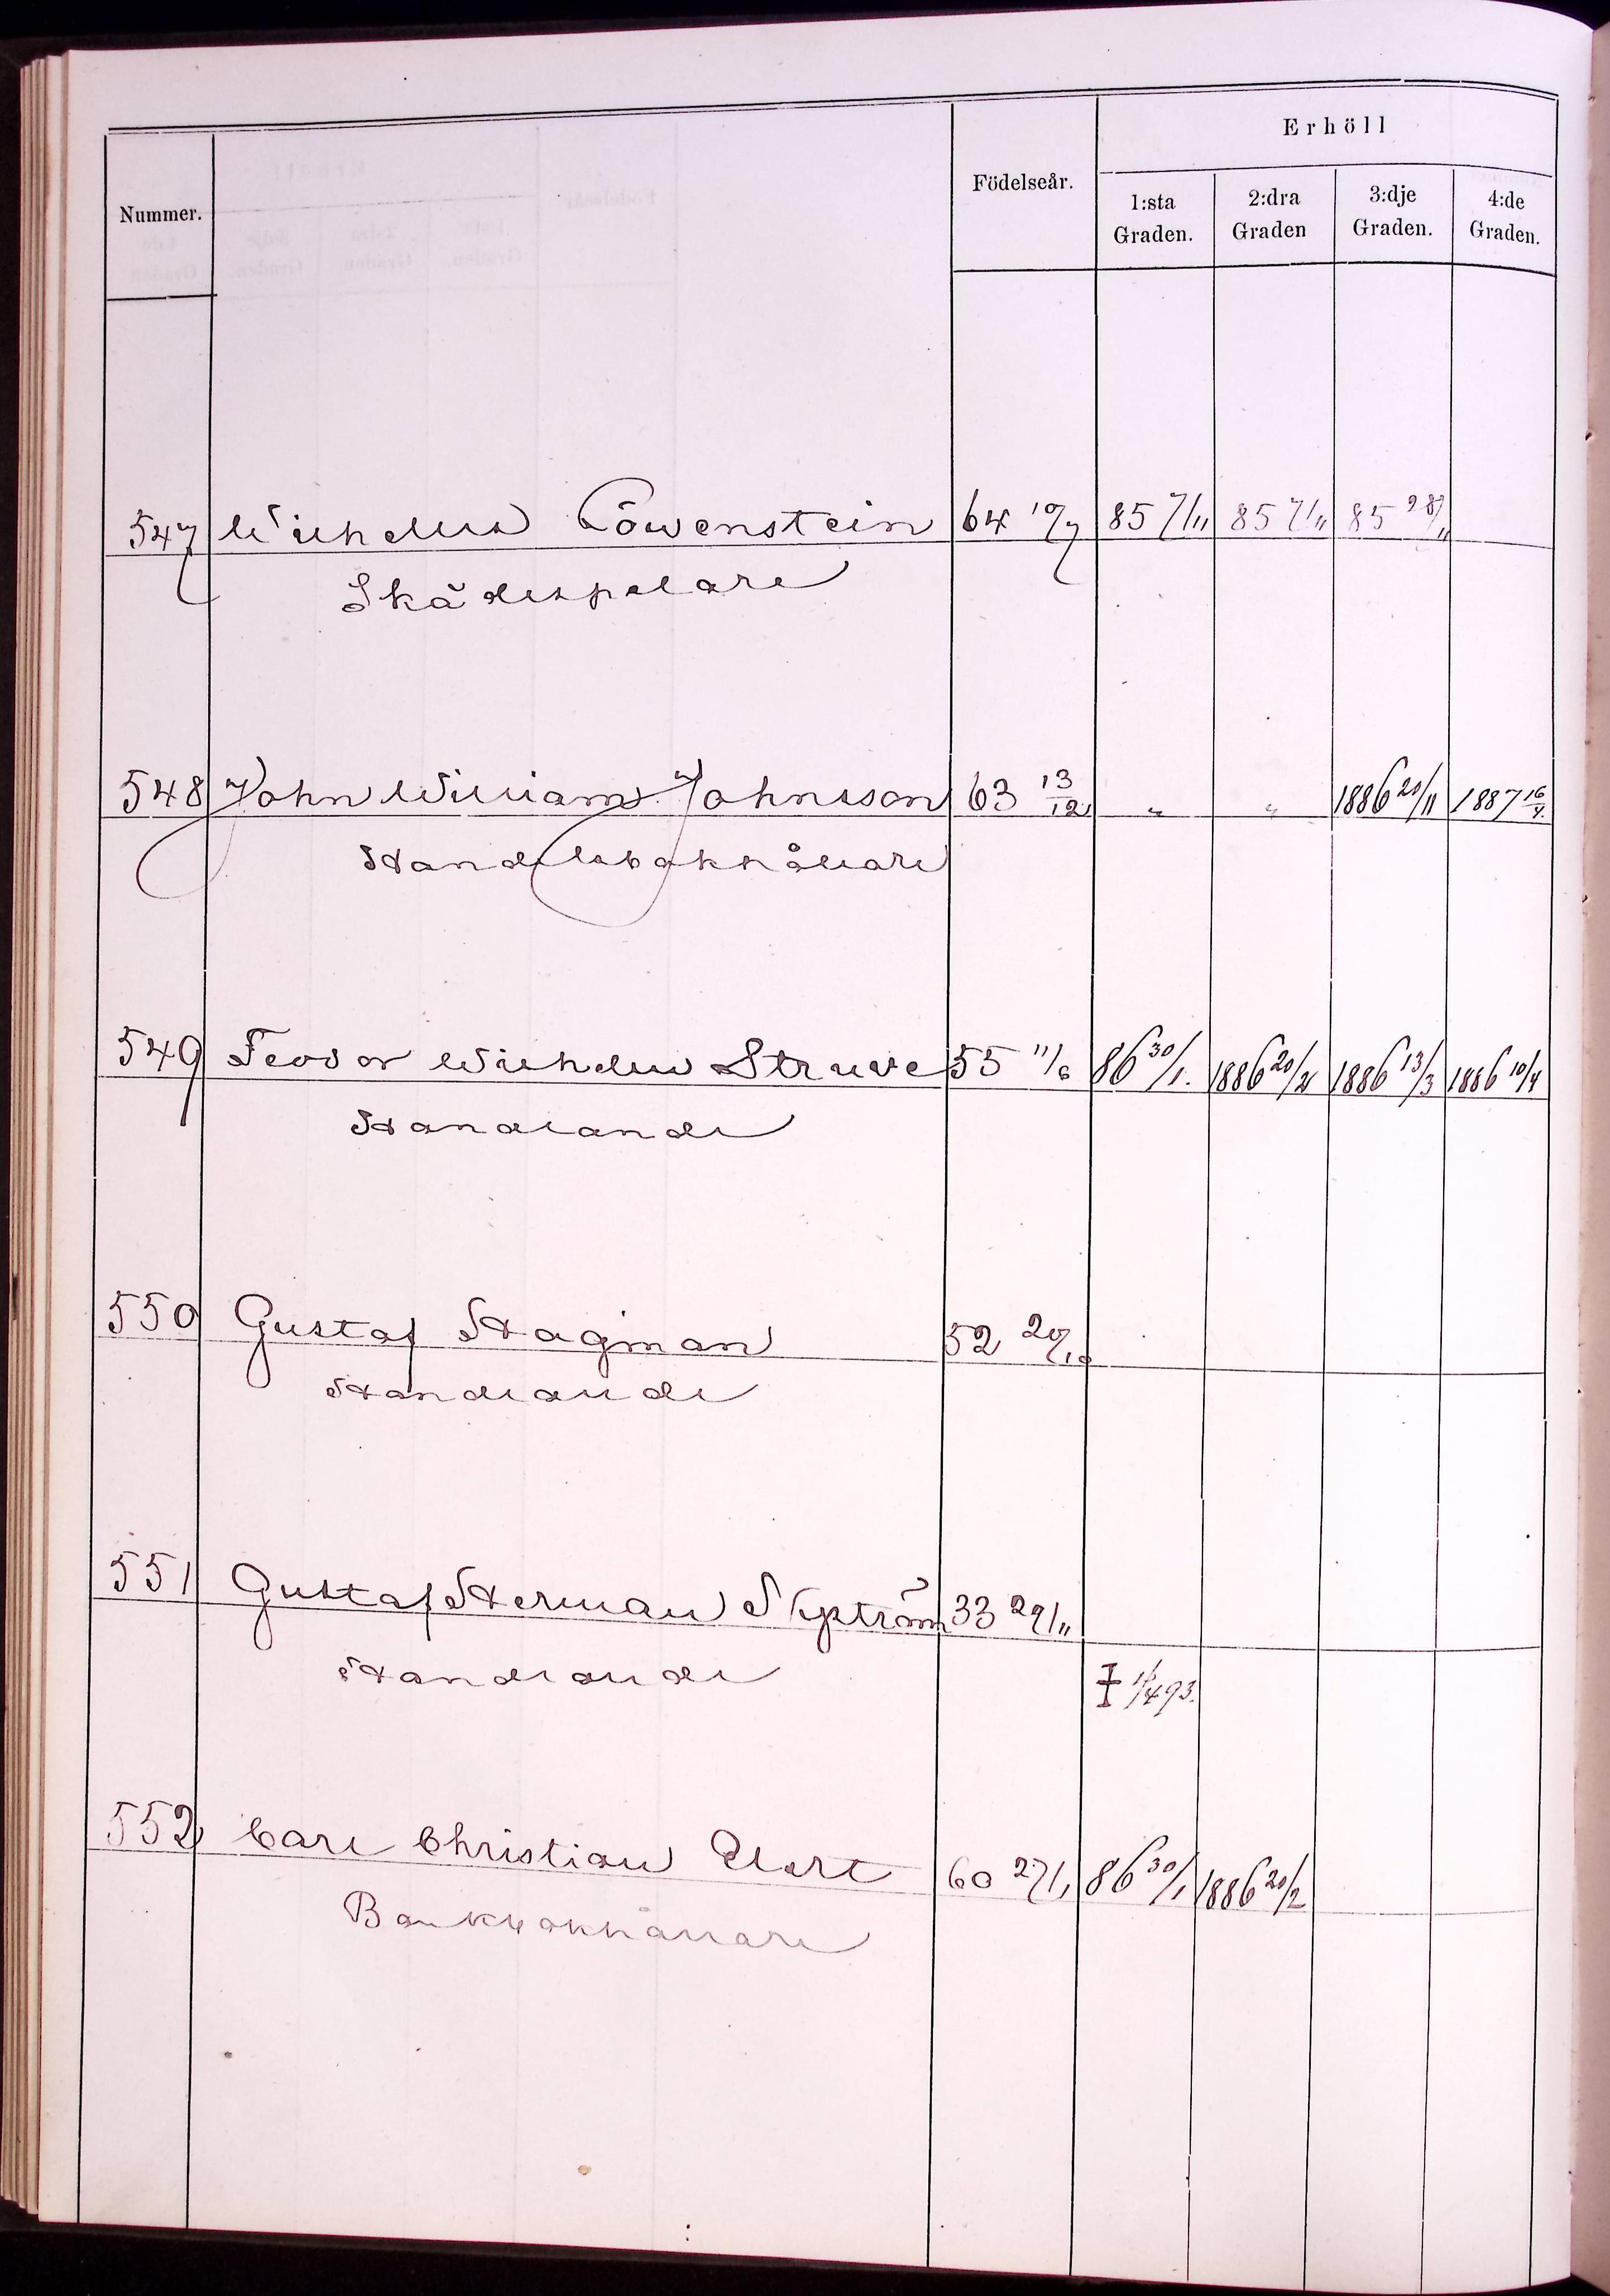 Erhöll
Nummer. Födelseår. 1:sta Graden. 2:dra Graden 3:dje Graden. 4:de Graden.
547 Wilhelm Löwenstein 64 10/7 85 7/11 85 7/11 85 28/11
Skådespelare
548 John William Johnsson 63 13/12 " " 1886 20/11 1887 16/4.
Handelsbokhållare
549 Feodor Wilhelm Struve 55 11/6 86 30/1. 1886 20/2 1886 13/3 1886 10/4
Handlande
550 Gustaf Hagman 52 20/10
Handlande
551 Gustaf Herman Nyström 33 29/11
Handlande
552 Carl Christian 60 27/1 86 30/1 1886 20/2
Bankbokhållare